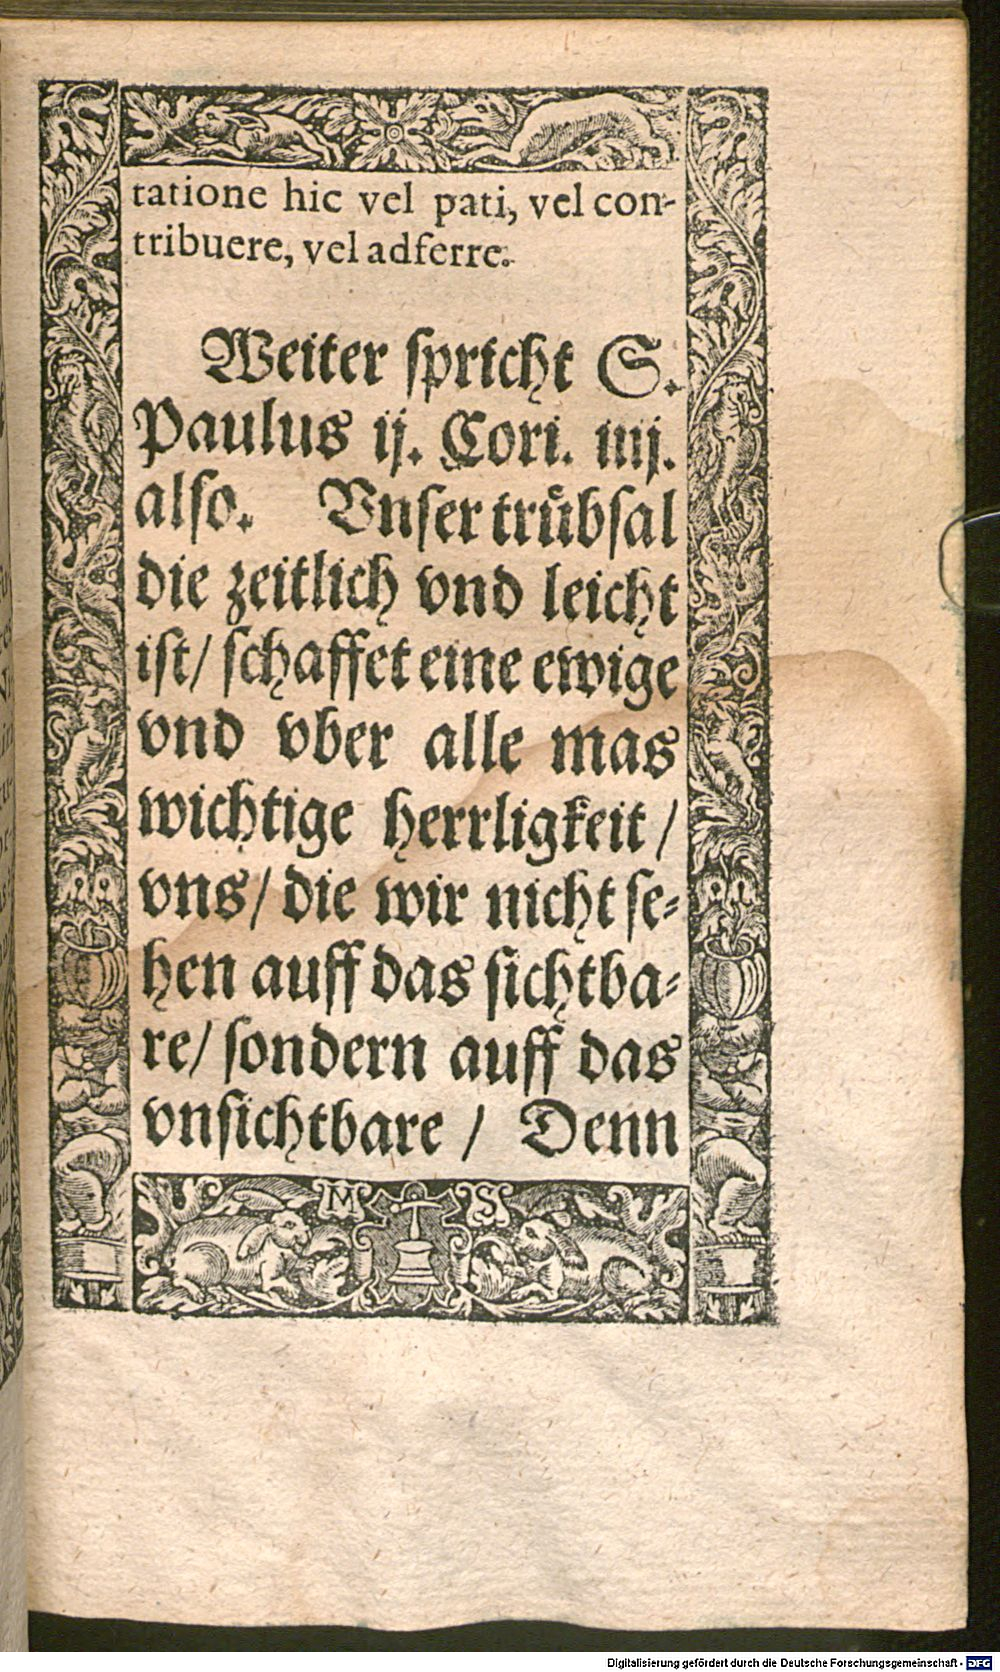 tatione hic vel pati, vel con-
tribuere, vel adferre.
Weiter spricht S.
Paulus ij. Cori. iiij.
also. Vnser trůbsal
die zeitlich vnd leicht
ist/ schaffet eine ewige
vnd vber alle mas
wichtige herrligkeit/
vns/ die wir nicht se-
hen auff das sichtba-
re/ sondern auff das
vnsichtbare/ Denn
M S
Digitalisierung gefördert durch die Deutsche Forschungsgemeinschaft - DFG